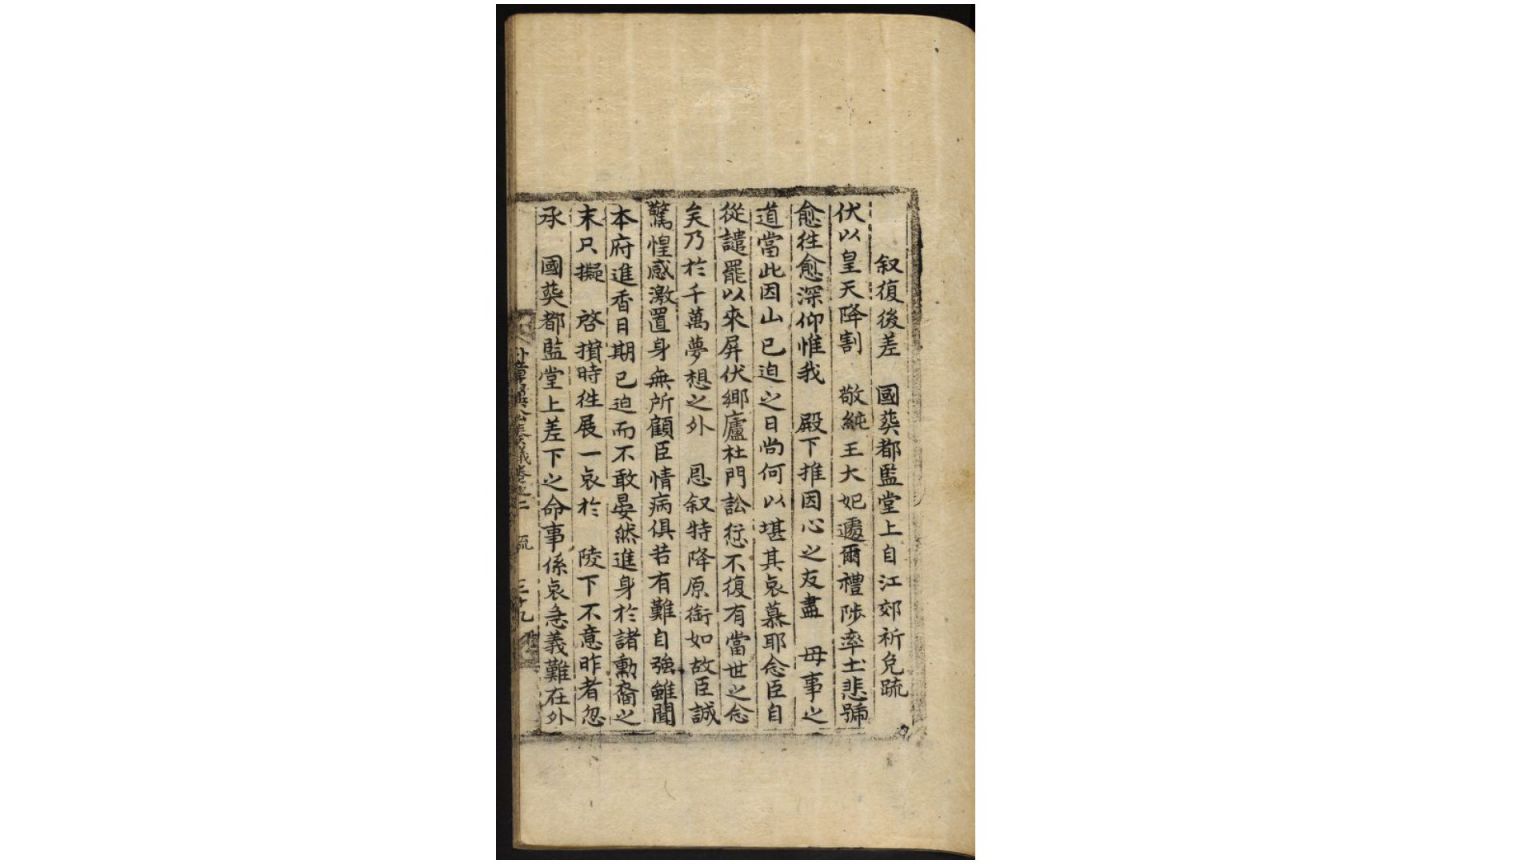 叙復後差　國葬都監堂上自江郊祈免疏
伏以皇天降割　敬純王大妃遽爾禮陟率土悲號
愈徃愈深仰惟我　殿下推因心之友盡　母事之
道當此因山已迫之日尚何以堪其哀慕耶念臣自
從譴罷以來屏伏鄉廬杜門訟愆不復有當世之念
矣乃於千萬夢想之外　恩叙特降原銜如故臣誠
驚惶感激置身無所顧臣情病俱若有難自強雖聞
本府進香日期已迫而不敢晏然進身於諸勳裔之
末只擬　啓攢時徃展一哀於　陵下不意昨者忽
承　國葬都監堂上差下之命事係哀急義難在外
奏議卷之二　疏　三十九